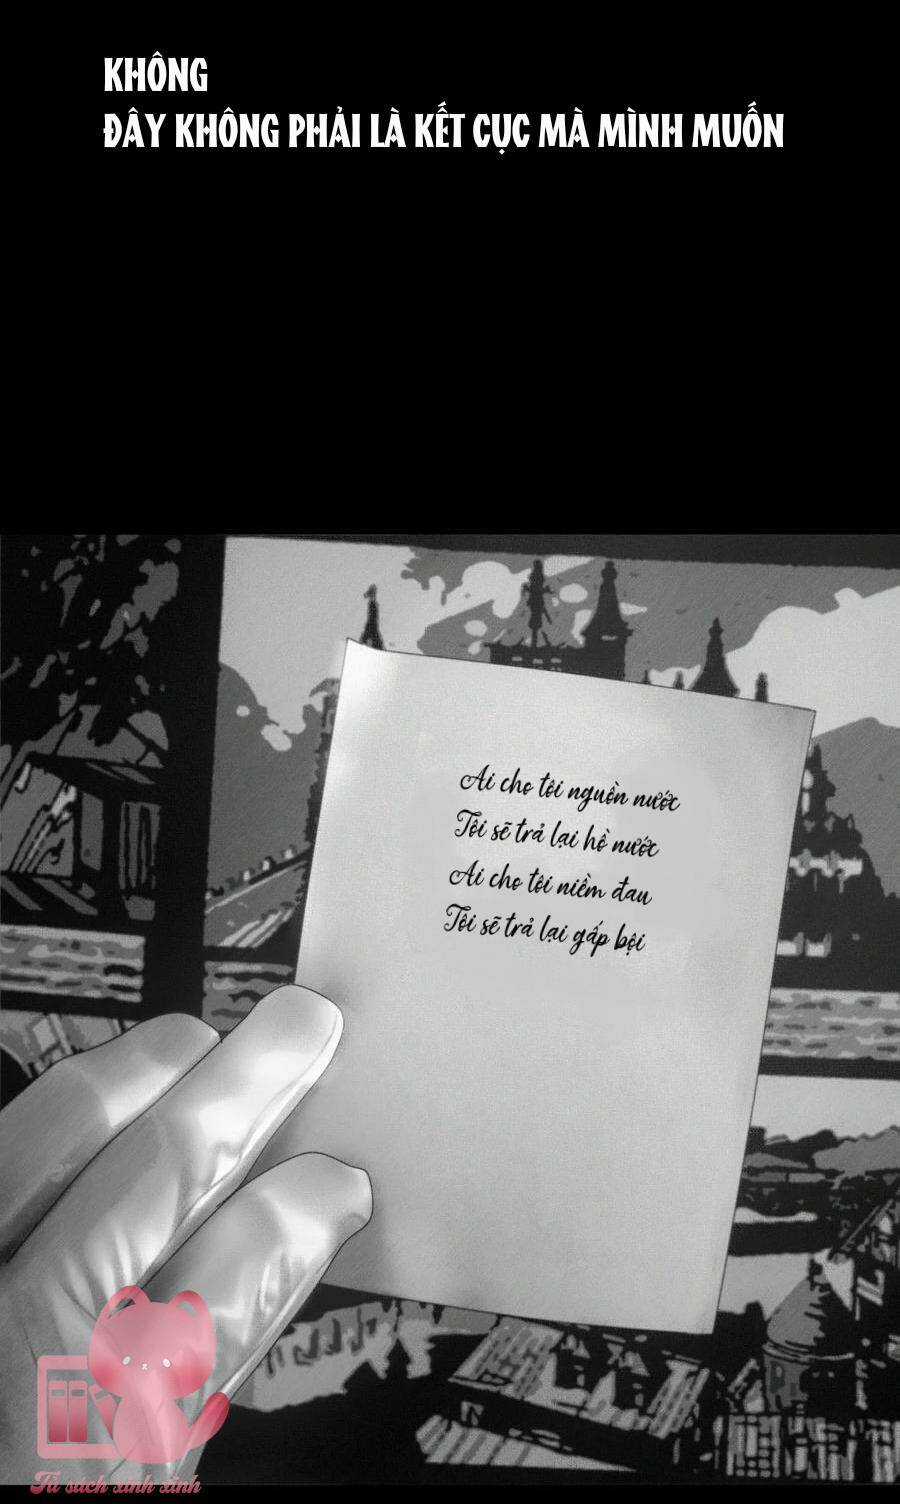 KHÔNG
ĐÂY KHÔNG PHẢI LÀ KẾT CỤC MÀ MÌNH MUỐN
Ai cho tôi nguồn nước
Tôi sẽ trả lại hồ nước
Ai cho tôi niềm đau
Tôi sẽ trả lại gấp bội
Tủ sách xinh xinh